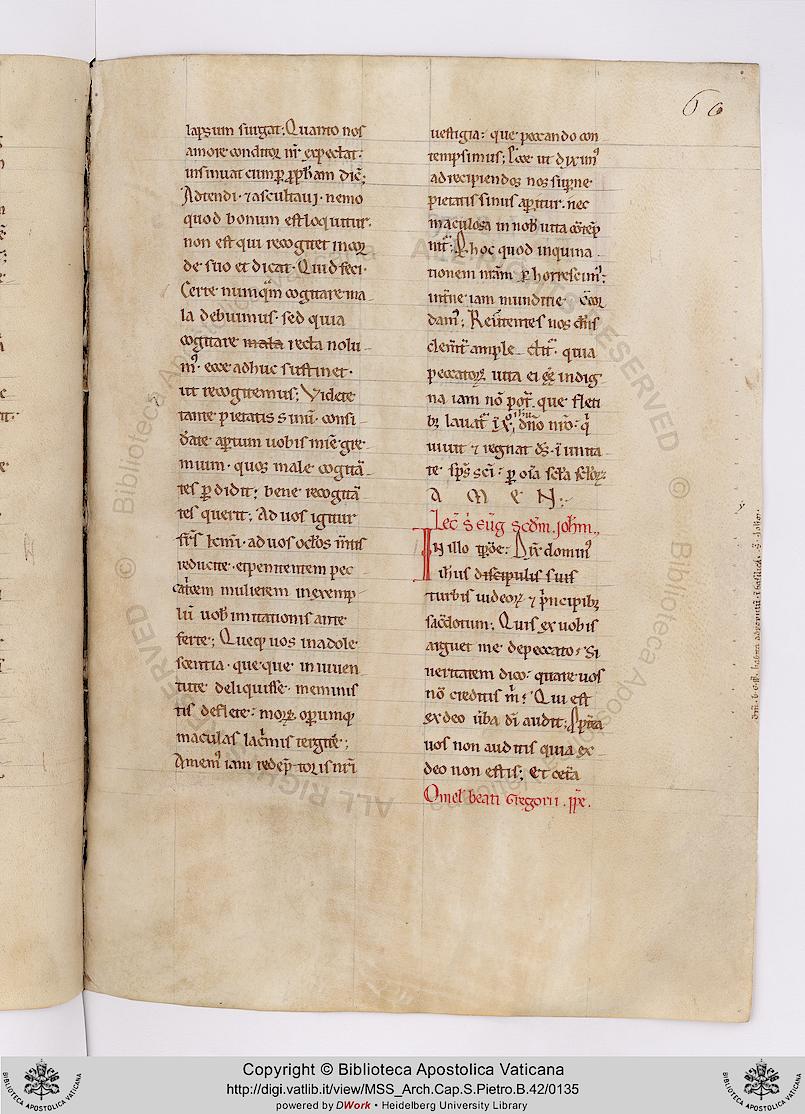 60
lapsum surgat; Quanto nos
amore conditor nr̄ expectat·
insinuat cum ꝑ ꝓph̄am dic̄;
Adtendi· ⁊ ascultaui· nemo
quod bonum est loquitur·
non est qui recogitet in cor
de suo et dicat· Quid feci·
Certe numqͣm cogitare ma
la debuimus· sed quia
cogitare mala recta nolu
mꝰ· ecce adhuc sustinet·
ut recogitemus; Videte
tante pietatis sinū· consi
d̄ate apertum uobis mīe gre
mium· quos male cogitā
tes ꝑdidit; bene recogitā
tes querit; Ad uos igitur
fr̄s kc̄mi· ad uos oc̄los m̄tis
reducite· et penitentem pec
cat̄cem mulierem in exemp
lū uob̄ imitationis ante
ferte; Queq; uos in adole
scentia· que que in iuuen
tute deliquisse· meminis
tis deflete· moꝝ operumq;
maculas lac̄mis tergite;
Amemꝰ iam redēptoris nr̄i
uestigia· que peccando con
tempsimus; Ecce ut diximꝰ
ad recipiendos nos sup̄ne
pietatis sinus aperitur· nec
maculosa in nob̄ uita cōtēp
nit̄; Ꝑ hoc quod inquina
tionem nr̄am ꝑhorrescimꝰ;
int̄ne iam munditie cōcor
damꝰ; Reūtentes nos dn̄s
clemt̄ ample ctit̄· quia
peccatoꝝ uita ei eē indig
na iam nō pot̄· que fleti
bꝫ lauat̄ ī xp̄o ih̄u dn̄o nr̄o· q̄
uiuit ⁊ regnat ds̄· ī unita
te sp̄s sc̄i· ꝑ oīa sc̄la sc̄loꝝ
A M E N;
Lec̄ s̄ eūg sc̄dm̄ Joh̄m·
In illo tp̄r̄e· Dix̄ dominꝰ
ih̄us discipulis suis
turbis iudeoꝝ ⁊ p̄ncipibꝫ
sac̄dotum; Quis ex uobis
arguet me de peccato; Si
ueritatem dico· quare uos
nō creditis m̄; Qui est
ex deo ūba dī audit; Ꝓpt̄ea
uos non auditis quia ex
deo non estis; Et cet̄a
Omel̄ beati Gregorii· pp̄e·
© Biblioteca Apostolica Vaticana ALL RIGHTS RESERVED
Copyright © Biblioteca Apostolica Vaticana
http://digi.vatlib.it/view/MSS_Arch.Cap.S.Pietro.B.42/0135
powered by DWork • Heidelberg University Library
BIBLIOTECA APOSTOLICA VATICANA
BIBLIOTECA APOSTOLICA VATICANA